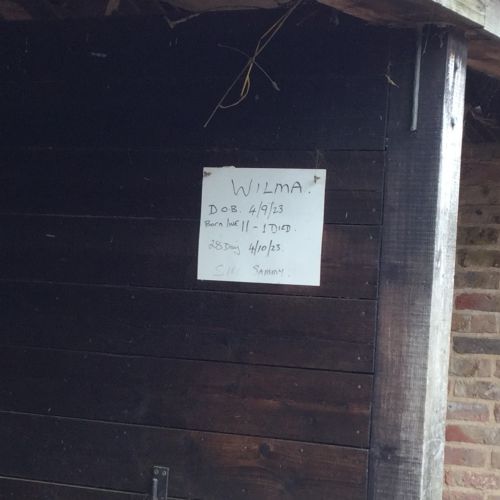 WILMA.
D.O.B. 4/9/23
Born Live 11 - 1 DIED.
28 Day 4/10/23.
SAMMY.